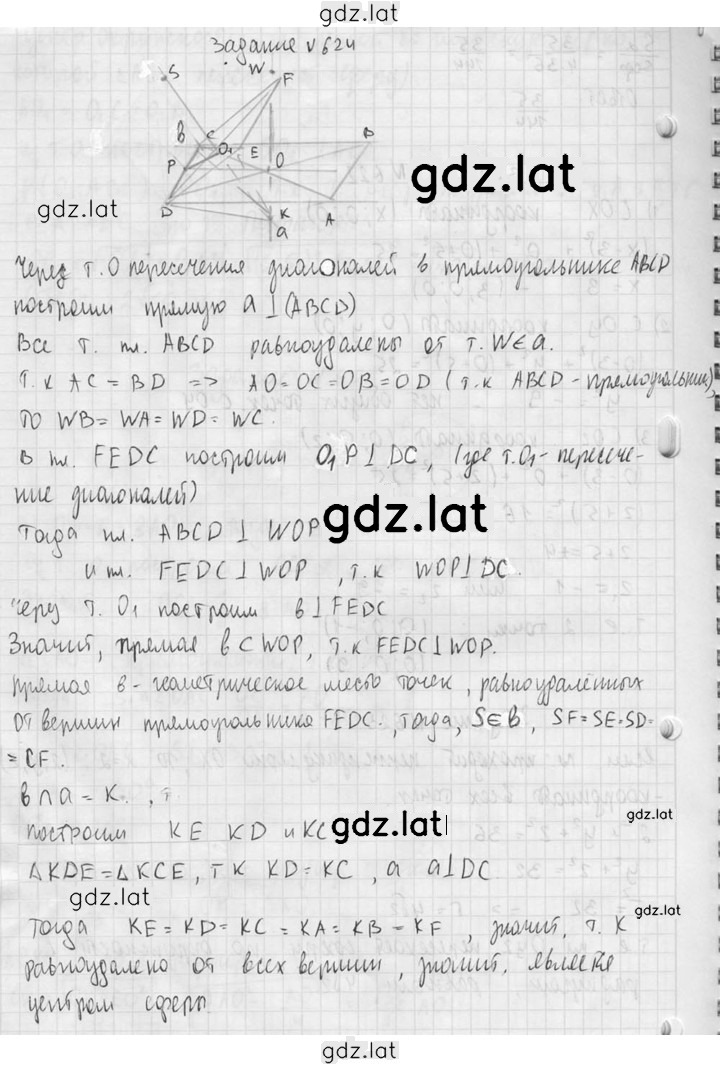 gdz.lat
Задание №624
S
W
F
B C O₁ E O B
P
D K A
a
gdz.lat
gdz.lat
Через т. О пересечения диагоналей в прямоугольнике ABCD
построим прямую a⊥(ABCD)
Все т. пл. ABCD равноудалены от т. W∈a.
Т.к AC = BD => AO=OC=OB=OD (т.к ABCD - прямоугольник),
то WB= WA= WD= WC.
В пл. FEDC построим O₁P⊥DC, (где т.O₁- пересече-
ние диагоналей)
gdz.lat
Тогда пл. ABCD ⊥ WOP
и пл. FEDC⊥WOP, т.к WOP⊥DC.
Через т. O₁ построим в⊥FEDC
Значит, прямая в⊂WOP, т.к FEDC⊥WOP.
Прямая в- геометрическое место точек, равноудаленных
от вершин прямоугольника FEDC., тогда, S∈B, SF=SE=SD=
=CF.
в∩a = K., т.
gdz.lat
построим KE KD и KC
gdz.lat
ΔKDE=ΔKCE, т к KD=KC, а a⊥DC
gdz.lat
gdz.lat
Тогда KE=KD=KC=KA=KB=KF, значит, т. K
равноудалено от всех вершин, значит. является
центром сферы.
gdz.lat